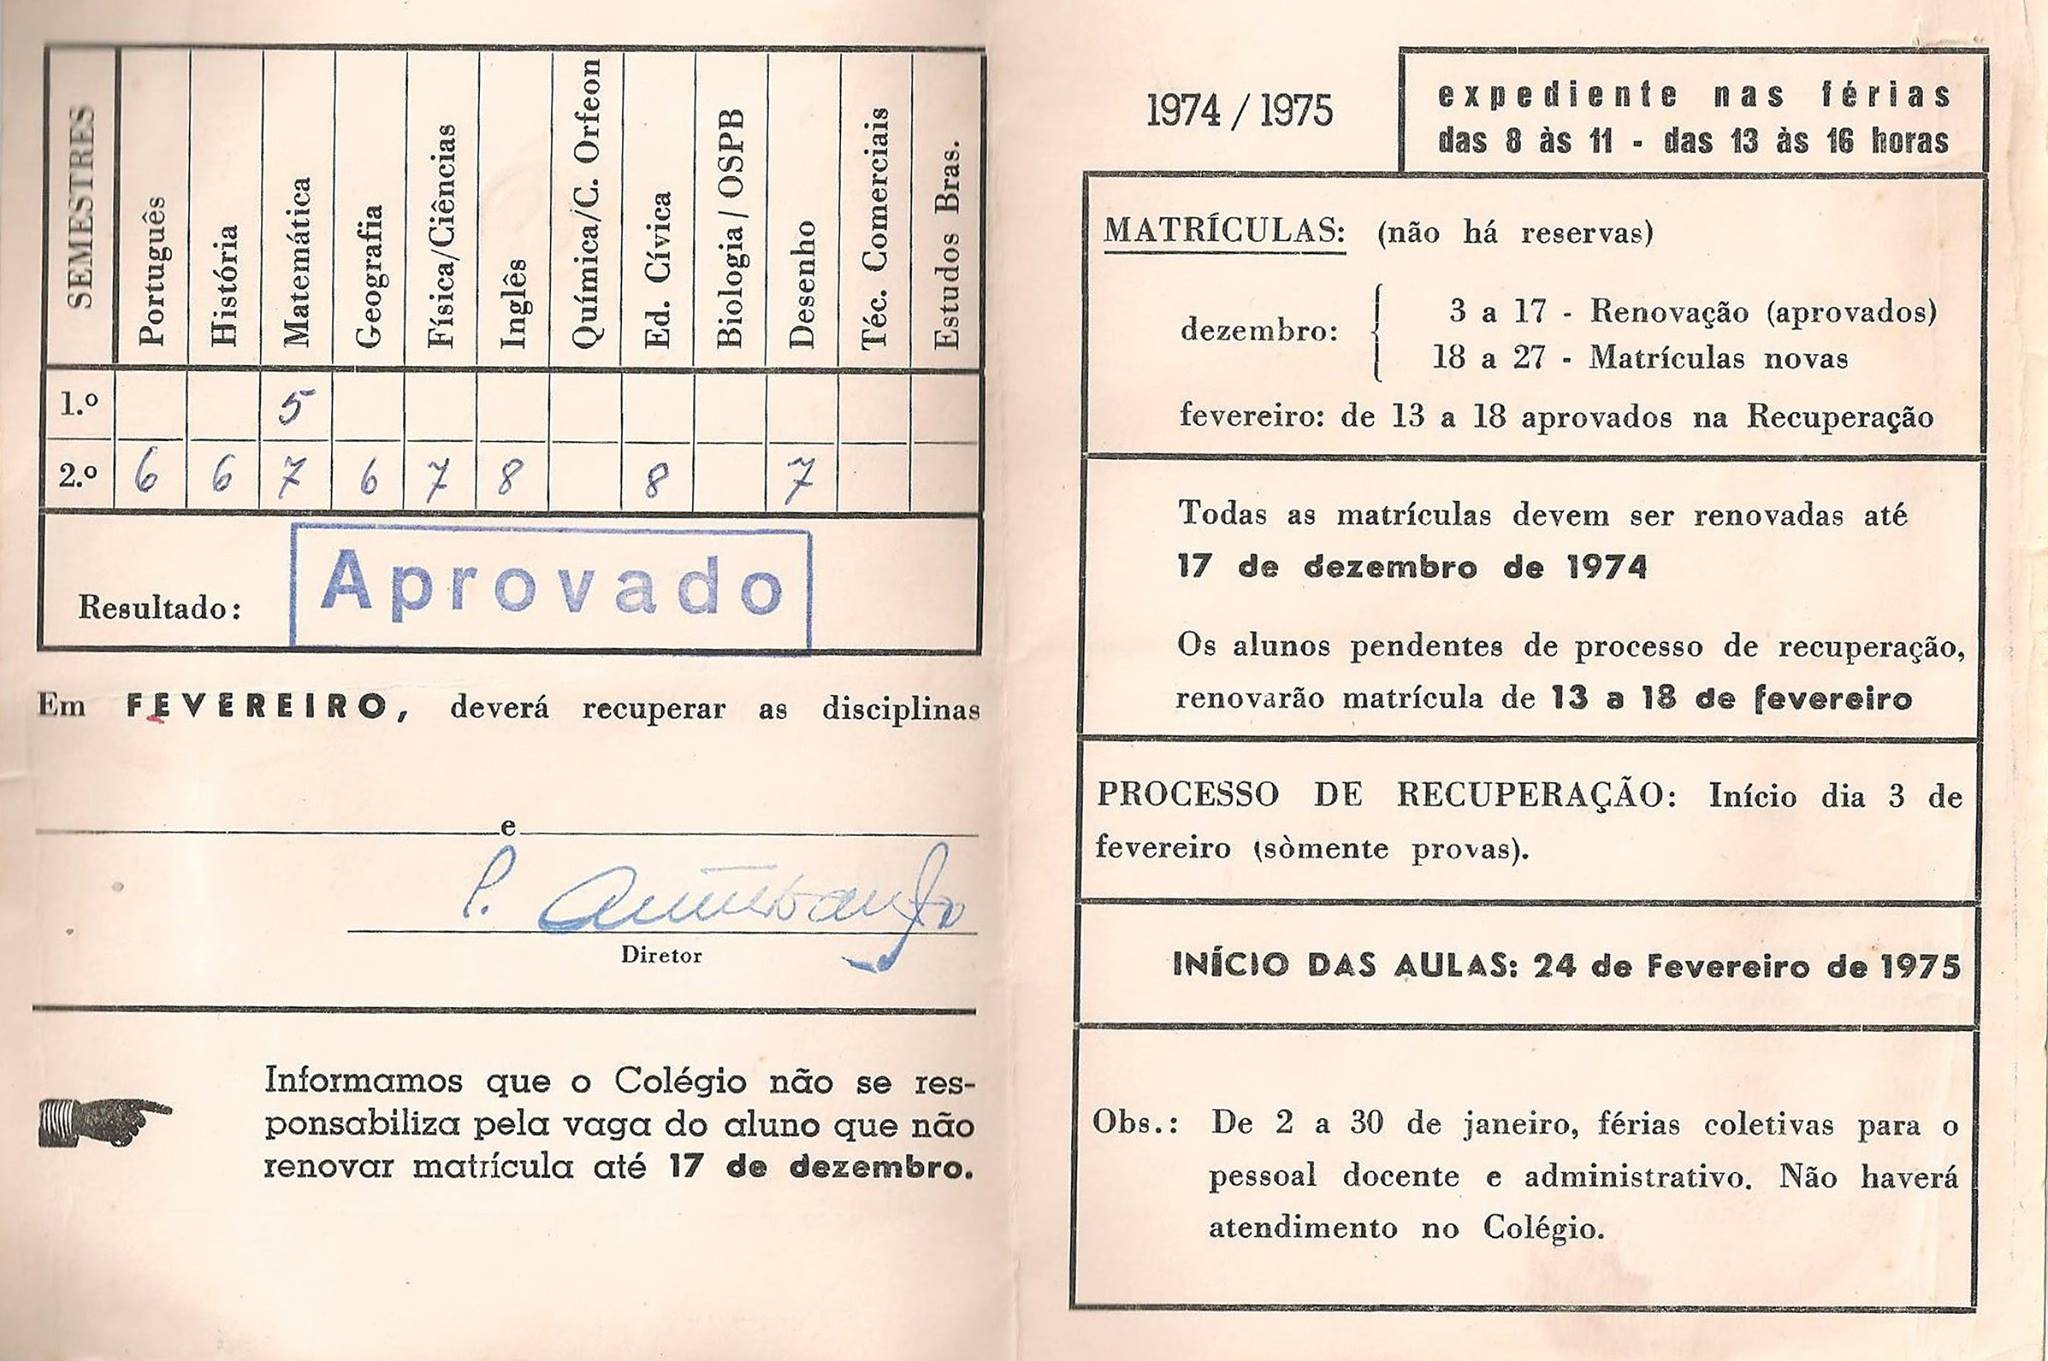 SEMESTRES
Português
História
Matemática
Geografia
Física/Ciências
Inglês
Química/C. Orfeon
Ed. Cívica
Biologia / OSPB
Desenho
Téc. Comerciais
Estudos Bras.
1.º 5
2.º 6 6 7 6 7 8 8 7
Resultado: Aprovado
Em FEVEREIRO, deverá recuperar as disciplinas
e
P.
Diretor
Informamos que o Colégio não se res-
ponsabiliza pela vaga do aluno que não
renovar matrícula até 17 de dezembro.
1974 / 1975
expediente nas férias
das 8 às 11 - das 13 às 16 horas
MATRÍCULAS: (não há reservas)
dezembro:
3 a 17 - Renovação (aprovados)
18 a 27 - Matrículas novas
fevereiro: de 13 a 18 aprovados na Recuperação
Todas as matrículas devem ser renovadas até
17 de dezembro de 1974
Os alunos pendentes de processo de recuperação,
renovarão matrícula de 13 a 18 de fevereiro
PROCESSO DE RECUPERAÇÃO: Início dia 3 de
fevereiro (sòmente provas).
INÍCIO DAS AULAS: 24 de Fevereiro de 1975
Obs.: De 2 a 30 de janeiro, férias coletivas para o
pessoal docente e administrativo. Não haverá
atendimento no Colégio.